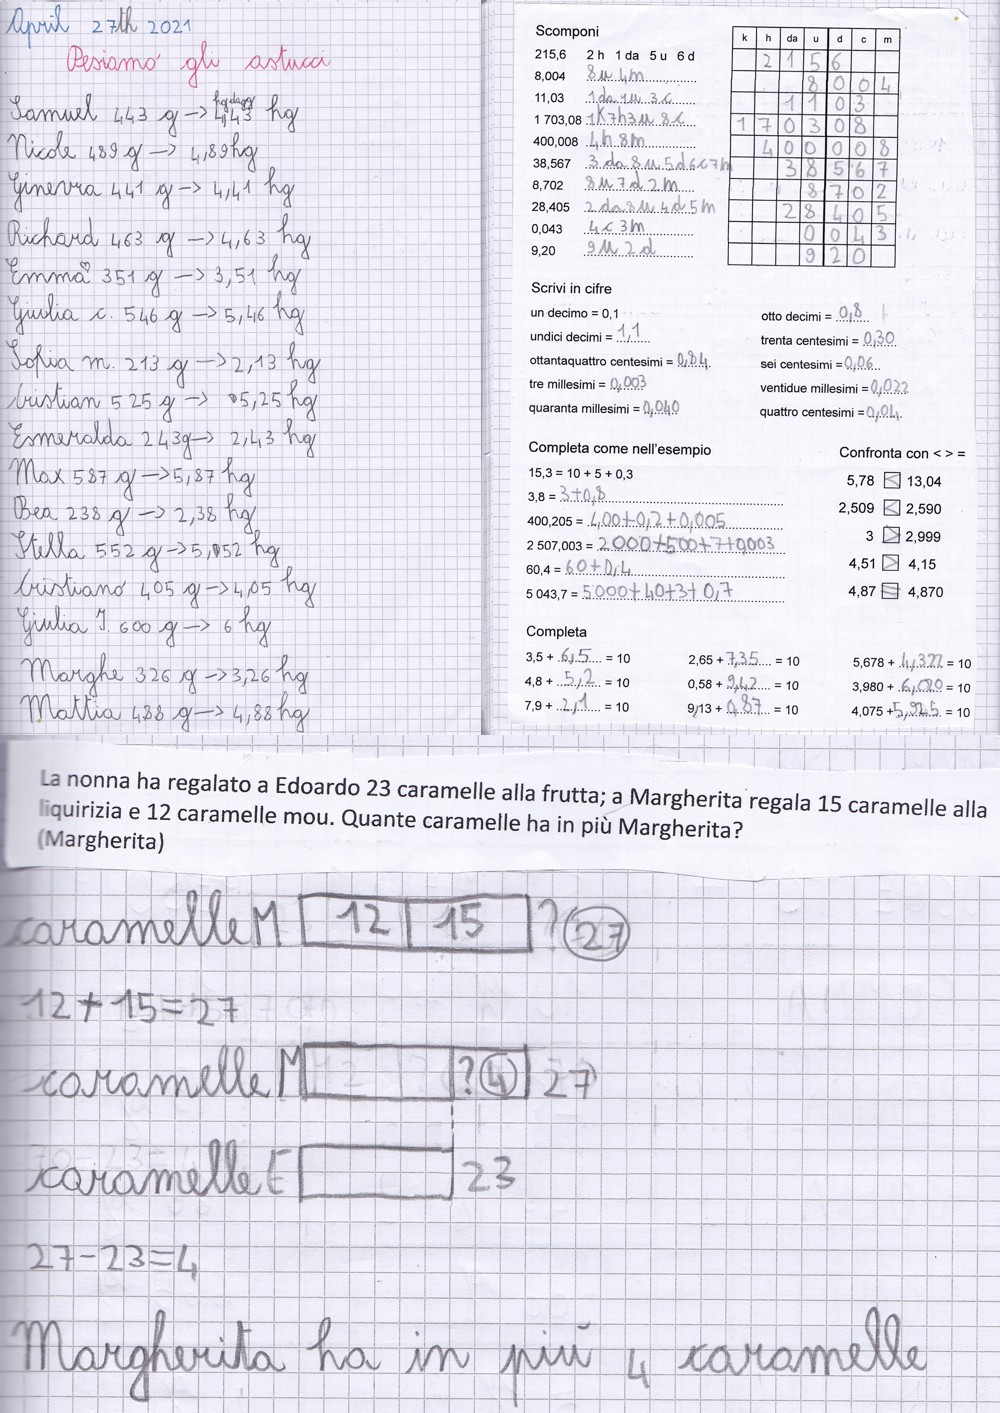 April 27th 2021
Pesiamo gli astucci
hg dag g
Samuel 443 g -> 4,43 hg
Nicole 489 g -> 4,89 hg
Ginevra 441 g -> 4,41 hg
Richard 463 g -> 4,63 hg
Emma 351 g -> 3,51 hg
Giulia c. 546 g -> 5,46 hg
Sofia m. 213 g -> 2,13 hg
Cristian 525 g -> 5,25 hg
Esmeralda 243g -> 2,43 hg
Max 587 g -> 5,87 hg
Bea 238 g -> 2,38 hg
Stella 552 g -> 5,52 hg
Cristiano 405 g -> 4,05 hg
Giulia J. 600 g -> 6 hg
Marghe 326 g -> 3,26 hg
Mattia 488 g -> 4,88 hg
Scomponi
215,6 2 h 1 da 5 u 6 d
8,004 8u 4m
11,03 1da 1u 3c
1 703,08 1k 7h 3u 8c
400,008 4h 8m
38,567 3 da 8 u 5d 6c 7m
8,702 8u 7d 2m
28,405 2 da 8u 4d 5m
0,043 4c 3m
9,20 9u 2d
k h da u d c m
2 1 5 6
8 0 0 4
1 1 0 3
1 7 0 3 0 8
4 0 0 0 0 8
3 8 5 6 7
8 7 0 2
2 8 4 0 5
0 0 4 3
9 2 0
Scrivi in cifre
un decimo = 0,1
undici decimi = 1,1
ottantaquattro centesimi = 0,84
tre millesimi = 0,003
quaranta millesimi = 0,040
otto decimi = 0,8
trenta centesimi = 0,30
sei centesimi = 0,06
ventidue millesimi = 0,022
quattro centesimi = 0,04
Completa come nell'esempio
15,3 = 10 + 5 + 0,3
3,8 = 3+0,8
400,205 = 400+0,2+0,005
2 507,003 = 2000+500+7+0,003
60,4 = 60+0,4
5 043,7 = 5000+40+3+0,7
Confronta con < > =
5,78 < 13,04
2,509 < 2,590
3 > 2,999
4,51 > 4,15
4,87 = 4,870
Completa
3,5 + 6,5 = 10
4,8 + 5,2 = 10
7,9 + 2,1 = 10
2,65 + 7,35 = 10
0,58 + 9,42 = 10
9,13 + 0,87 = 10
5,678 + 4,322 = 10
3,980 + 6,020 = 10
4,075 + 5,925 = 10
La nonna ha regalato a Edoardo 23 caramelle alla frutta; a Margherita regala 15 caramelle alla
liquirizia e 12 caramelle mou. Quante caramelle ha in più Margherita?
(Margherita)
caramelle M 12 15 ? 27
12+15=27
caramelle M ? 4 27
caramelle E 23
27-23=4
Margherita ha in più 4 caramelle